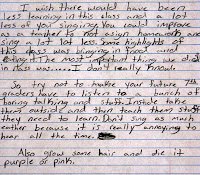 I wish there would have been
less learning in this class and a lot
less of your singing. You could improve
as a teacher to not assign homework and
sing a lot lot less. Some highlights of
this class was bringing in food and
eating it. The most important thing we did
in class was.....I don't really know.
So try not to make your future 7th
graders have to listen to a bunch of
boring talking and stuff. Instide take
them outside and then teach them stuff
they need to learn. Don't sing as much
eather because it is really annoying to
hear all the time.
Also grow some hair and die it
purple or pink.